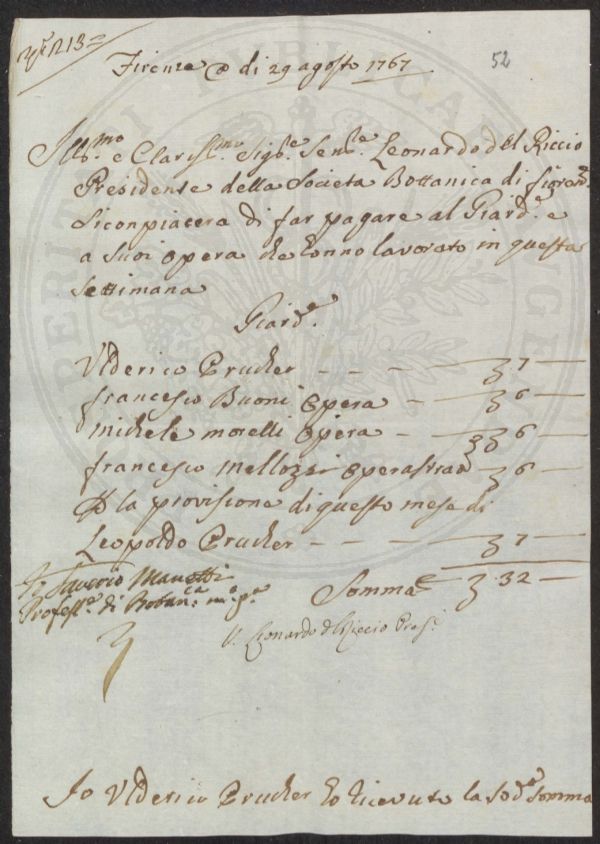 N.º 213=
52
Firenze @ di 29 agosto 1767
Ill.mo e Clariss.mo Sig.re Sen.re Leonardo del Riccio
Presidente della Societa Bottanica di Fiorenz.
Siconpiacera di far pagare al Giard.e e
a suoi opera che honno lavorato in questa
settimana
Giard.e
Vlderico Prucher - - - 7 -
francesco Buoni opera - 6 -
michele morelli opera - 6 -
francesco mellozzi opera - 6 -
P la provisione di questo mese di
Leopoldo Prucher - - - 7 -
Somma 32 -
Io Saverio Manetti
Profess.e di Botan.ca m.o p.a
V. Lionardo d Riccio Pres.
Io Vlderico Prucher ho riceuuto la sod.a somma
SPERITATI PVBLICAE AVGENDAE